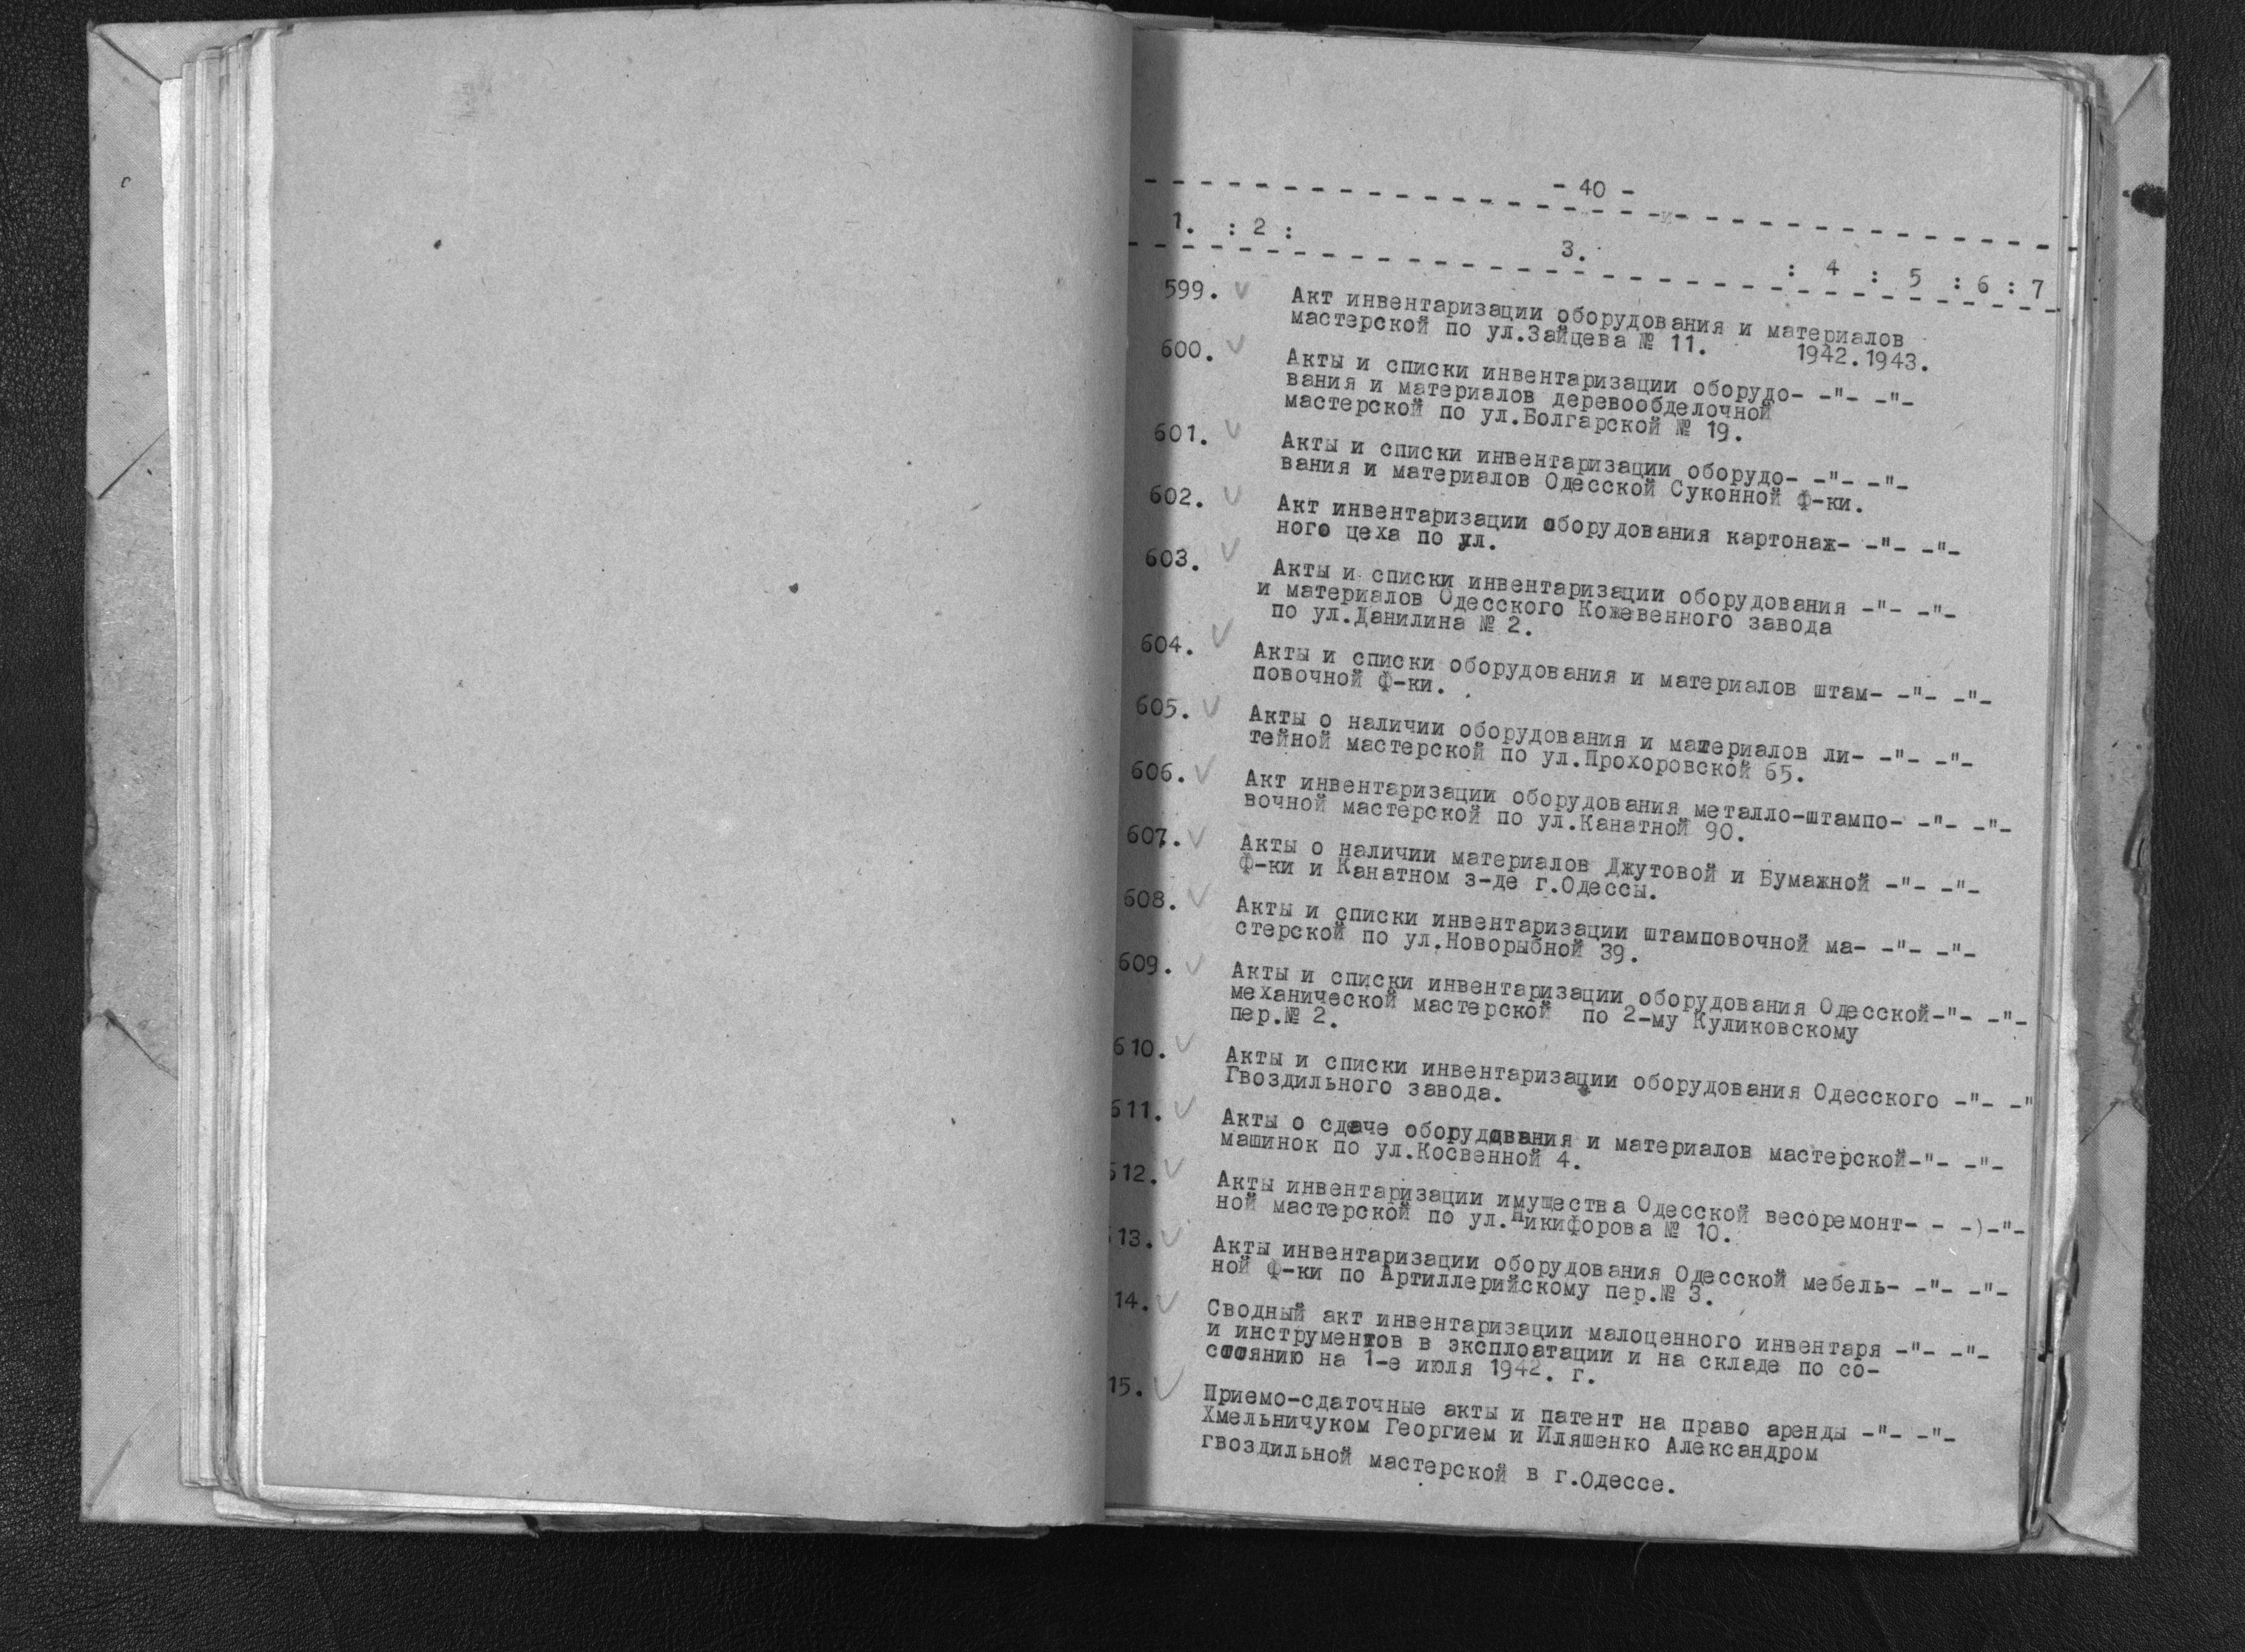 - 40 -
1. : 2 : 3. : 4 : 5 : 6 : 7
599. Акт инвентаризации оборудования и материалов
мастерской по ул.Зайцева № 11. 1942.1943.
600. Акты и списки инвентаризации оборудо- -"- -"-
вания и материалов деревообделочной
мастерской по ул.Болгарской № 19.
601. Акты и списки инвентаризации оборудо- -"- -"-
вания и материалов Одесской Суконной Ф-ки.
602. Акт инвентаризации оборудования картонаж- -"- -"-
ного цеха по ул.
603. Акты и списки инвентаризации оборудования -"- -"-
и материалов Одесского Кожевенного завода
по ул.Данилина № 2.
604. Акты и списки оборудования и материалов штам- -"- -"-
повочной Ф-ки.
605. Акты о наличии оборудования и материалов ли- -"- -"-
тейной мастерской по ул.Прохоровской 65.
606. Акт инвентаризации оборудования металло-штампо- -"- -"-
вочной мастерской по ул.Канатной 90.
607. Акты о наличии материалов Джутовой и Бумажной -"- -"-
Ф-ки и Канатном з-де г.Одессы.
608. Акты и списки инвентаризации штамповочной ма- -"- -"-
стерской по ул.Новорыбной 39.
609. Акты и списки инвентаризации оборудования Одесской-"- -"-
механической мастерской по 2-му Куликовскому
пер.№ 2.
610. Акты и списки инвентаризации оборудования Одесского -"- -"
Гвоздильного завода.
611. Акты о сдаче оборудования и материалов мастерской-"- -"-
машинок по ул.Косвенной 4.
612. Акты инвентаризации имущества Одесской весоремонт- - -)-"-
ной мастерской по ул.Никифорова № 10.
13. Акты инвентаризации оборудования Одесской мебель- -"- -"-
ной Ф-ки по Артиллерийскому пер.№ 3.
14. Сводный акт инвентаризации малоценного инвентаря -"- -"-
и инструментов в эксплоатации и на складе по со-
стоянию на 1-е июля 1942. г.
15. Приемо-сдаточные акты и патент на право аренды -"- -"-
Хмельничуком Георгием и Иляшенко Александром
гвоздильной мастерской в г.Одессе.